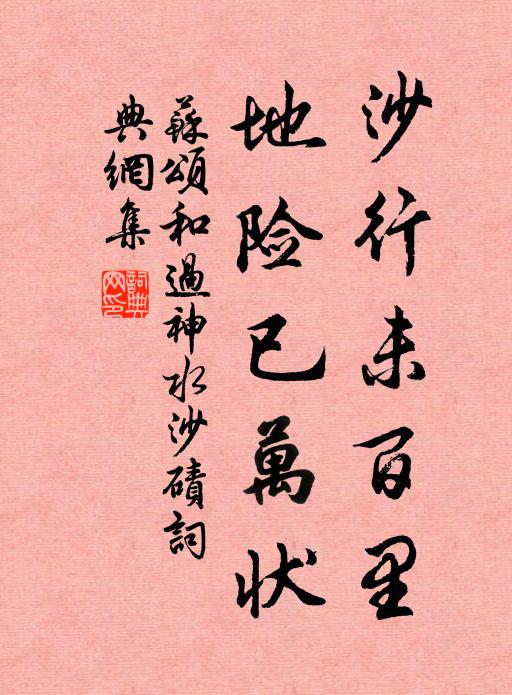 沙行未百里
地险已萬状
蘇頌和過神水沙磧詞
典網集
詞典
网印